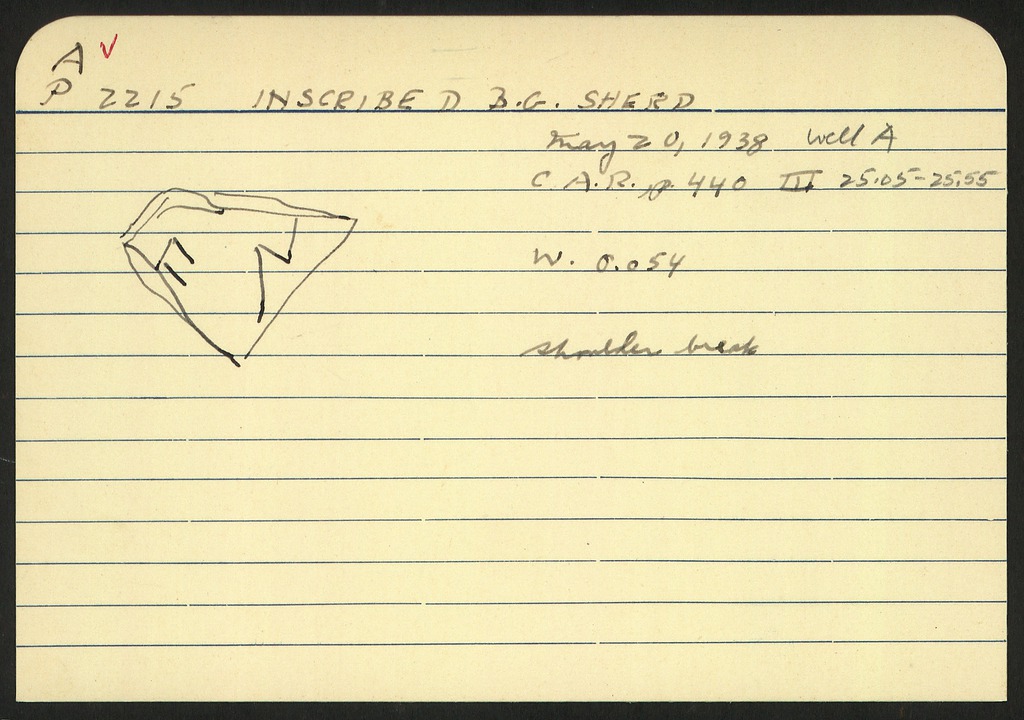 A ✓
P 2215 INSCRIBED B.G. SHERD
May 20, 1938 Well A
C.A.R. p. 440 III 25.05-25.55
W. 0.054
shoulder break